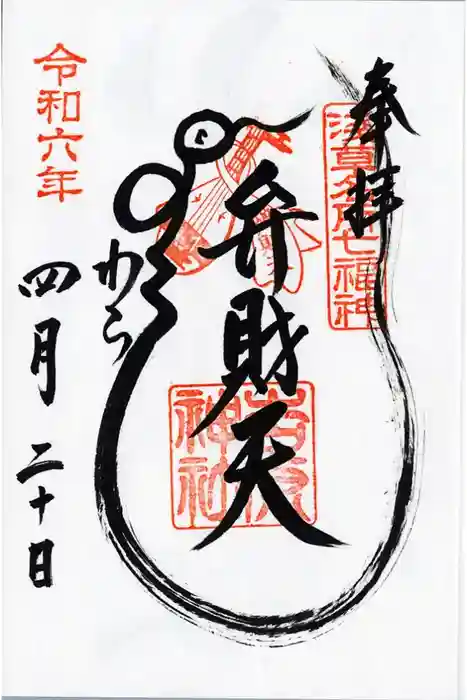 奉拝
浅草名所七福神
弁財天
吉原神社
令和六年
四月二十日